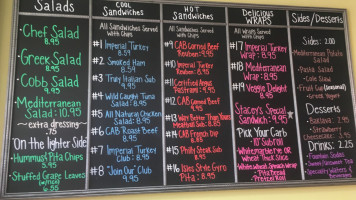 Salads
Chef Salad
8.95
Greek Salad
8.95
Cobb Salad
8.95
Mediterranean
Salad - 10.95
~extra dressing~
.75
"On the lighter Side
Hummus & Pita Chips
5.95
Stuffed Grape Leaves
6.55
COOL
Sandwiches
All Sandwiches Served
with Chips
#1 Imperial Turkey
8.95
#2 Smoked Ham
8.95
#3 Truly Italian Sub
8.95
#4 Wild Caught Tuna
Salad: 8.95
#5 All Natural Chicken
Salad: 8.95
#6 CAB Roast Beef
8.95
#7 Imperial Turkey
Club: 8.95
#8 "Join Our" Club
8.95
HOT
Sandwiches
All Sandwiches Served
with Chips
#9 CAB Corned Beef
Reuben: 9.95
#10 Imperial Turkey
Reuben: 9.95
#11 Certified Angus
Pastrami: 9.95
#12 CAB Corned Beef
9.95
#13 Way Better Than Yours
Meatball Sub: 8.95
#14 CAB French Dip
8.95
#15 Philly Steak Sub
8.95
#16 Isles Style Gyro
Pita: 8.95
Delicious
WRAPS
All Wraps Served
with Chips
#17 Imperial Turkey
Wrap: 8.95
#18 Mediterranean
Wrap: 8.95
#19 Veggie Delight
8.95
Stacey's Special
Sandwich: 9.95
Pick Your Carb
*10" Sub Roll
*White, Marble Rye or
Wheat Thick Slice
*White, Wheat, Spinach Wrap
*Pita Bread
*Pretzel Roll
Sides/Desserts
Sides: 2.00
Mediterranean Potato
Salad
Pasta Salad
Cole Slaw
Fresh Fruit
Desserts
Baklava: 2.95
Strawberry
Cheesecake:
3.95
Drinks: 2.25
Fountain Sodas